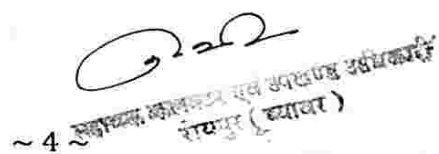 सहायक कलक्टर एवं उपखण्ड अधिकारी
रायपुर ( ब्यावर )
~ 4 ~